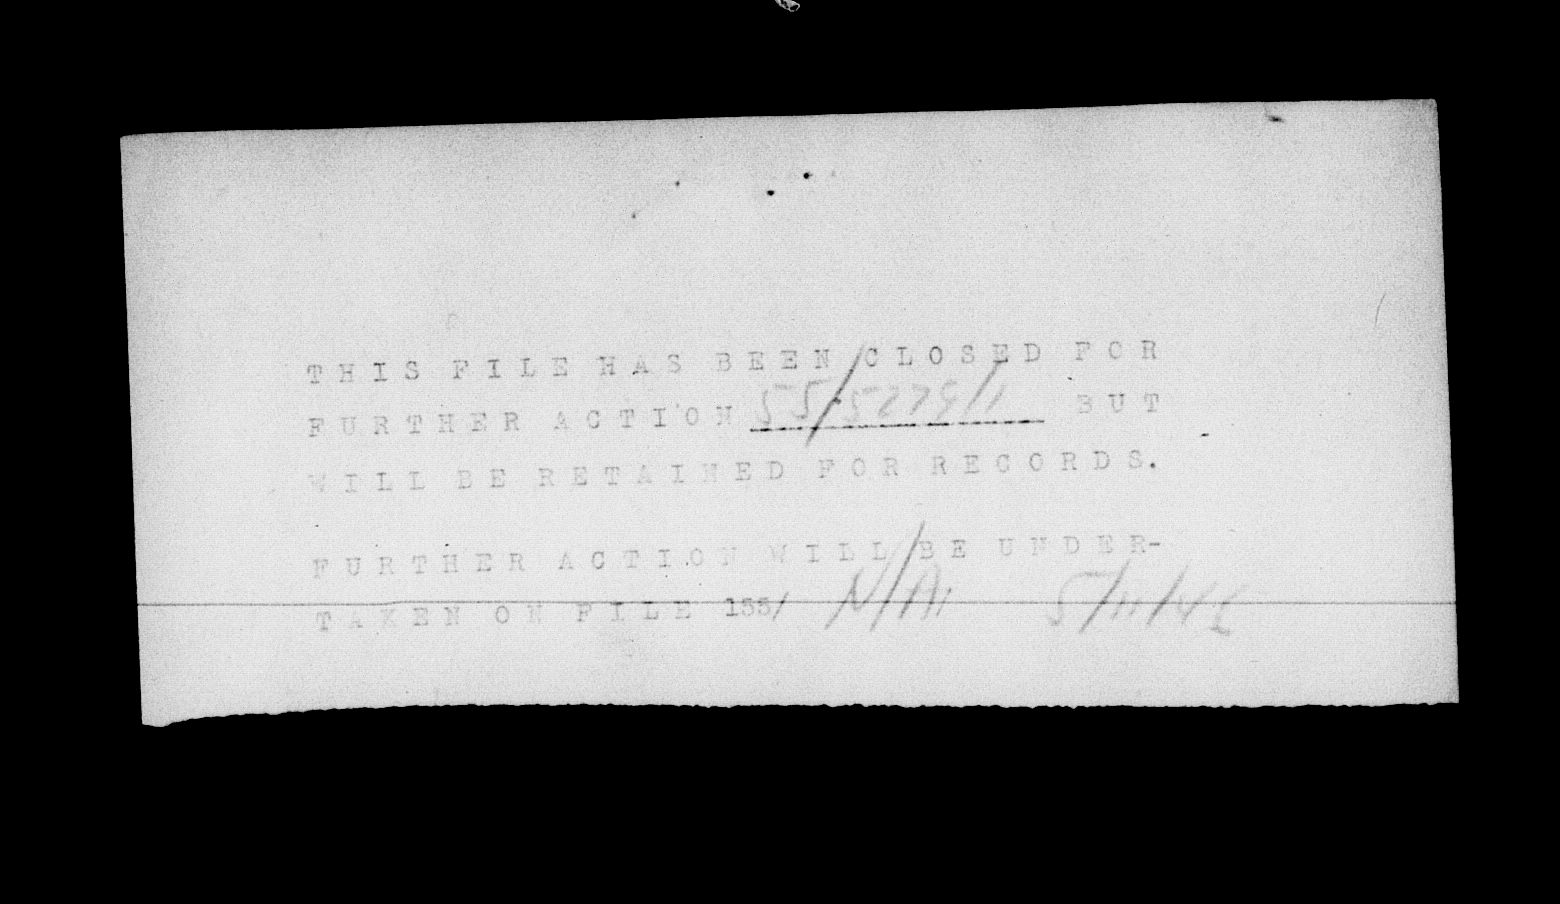 THIS FILE HAS BEEN CLOSED FOR
FURTHER ACTION 55/5279/1 BUT
WILL BE RETAINED FOR RECORDS.
FURTHER ACTION WILL BE UNDER-
TAKEN ON FILE 155/ N/A 5/11/46